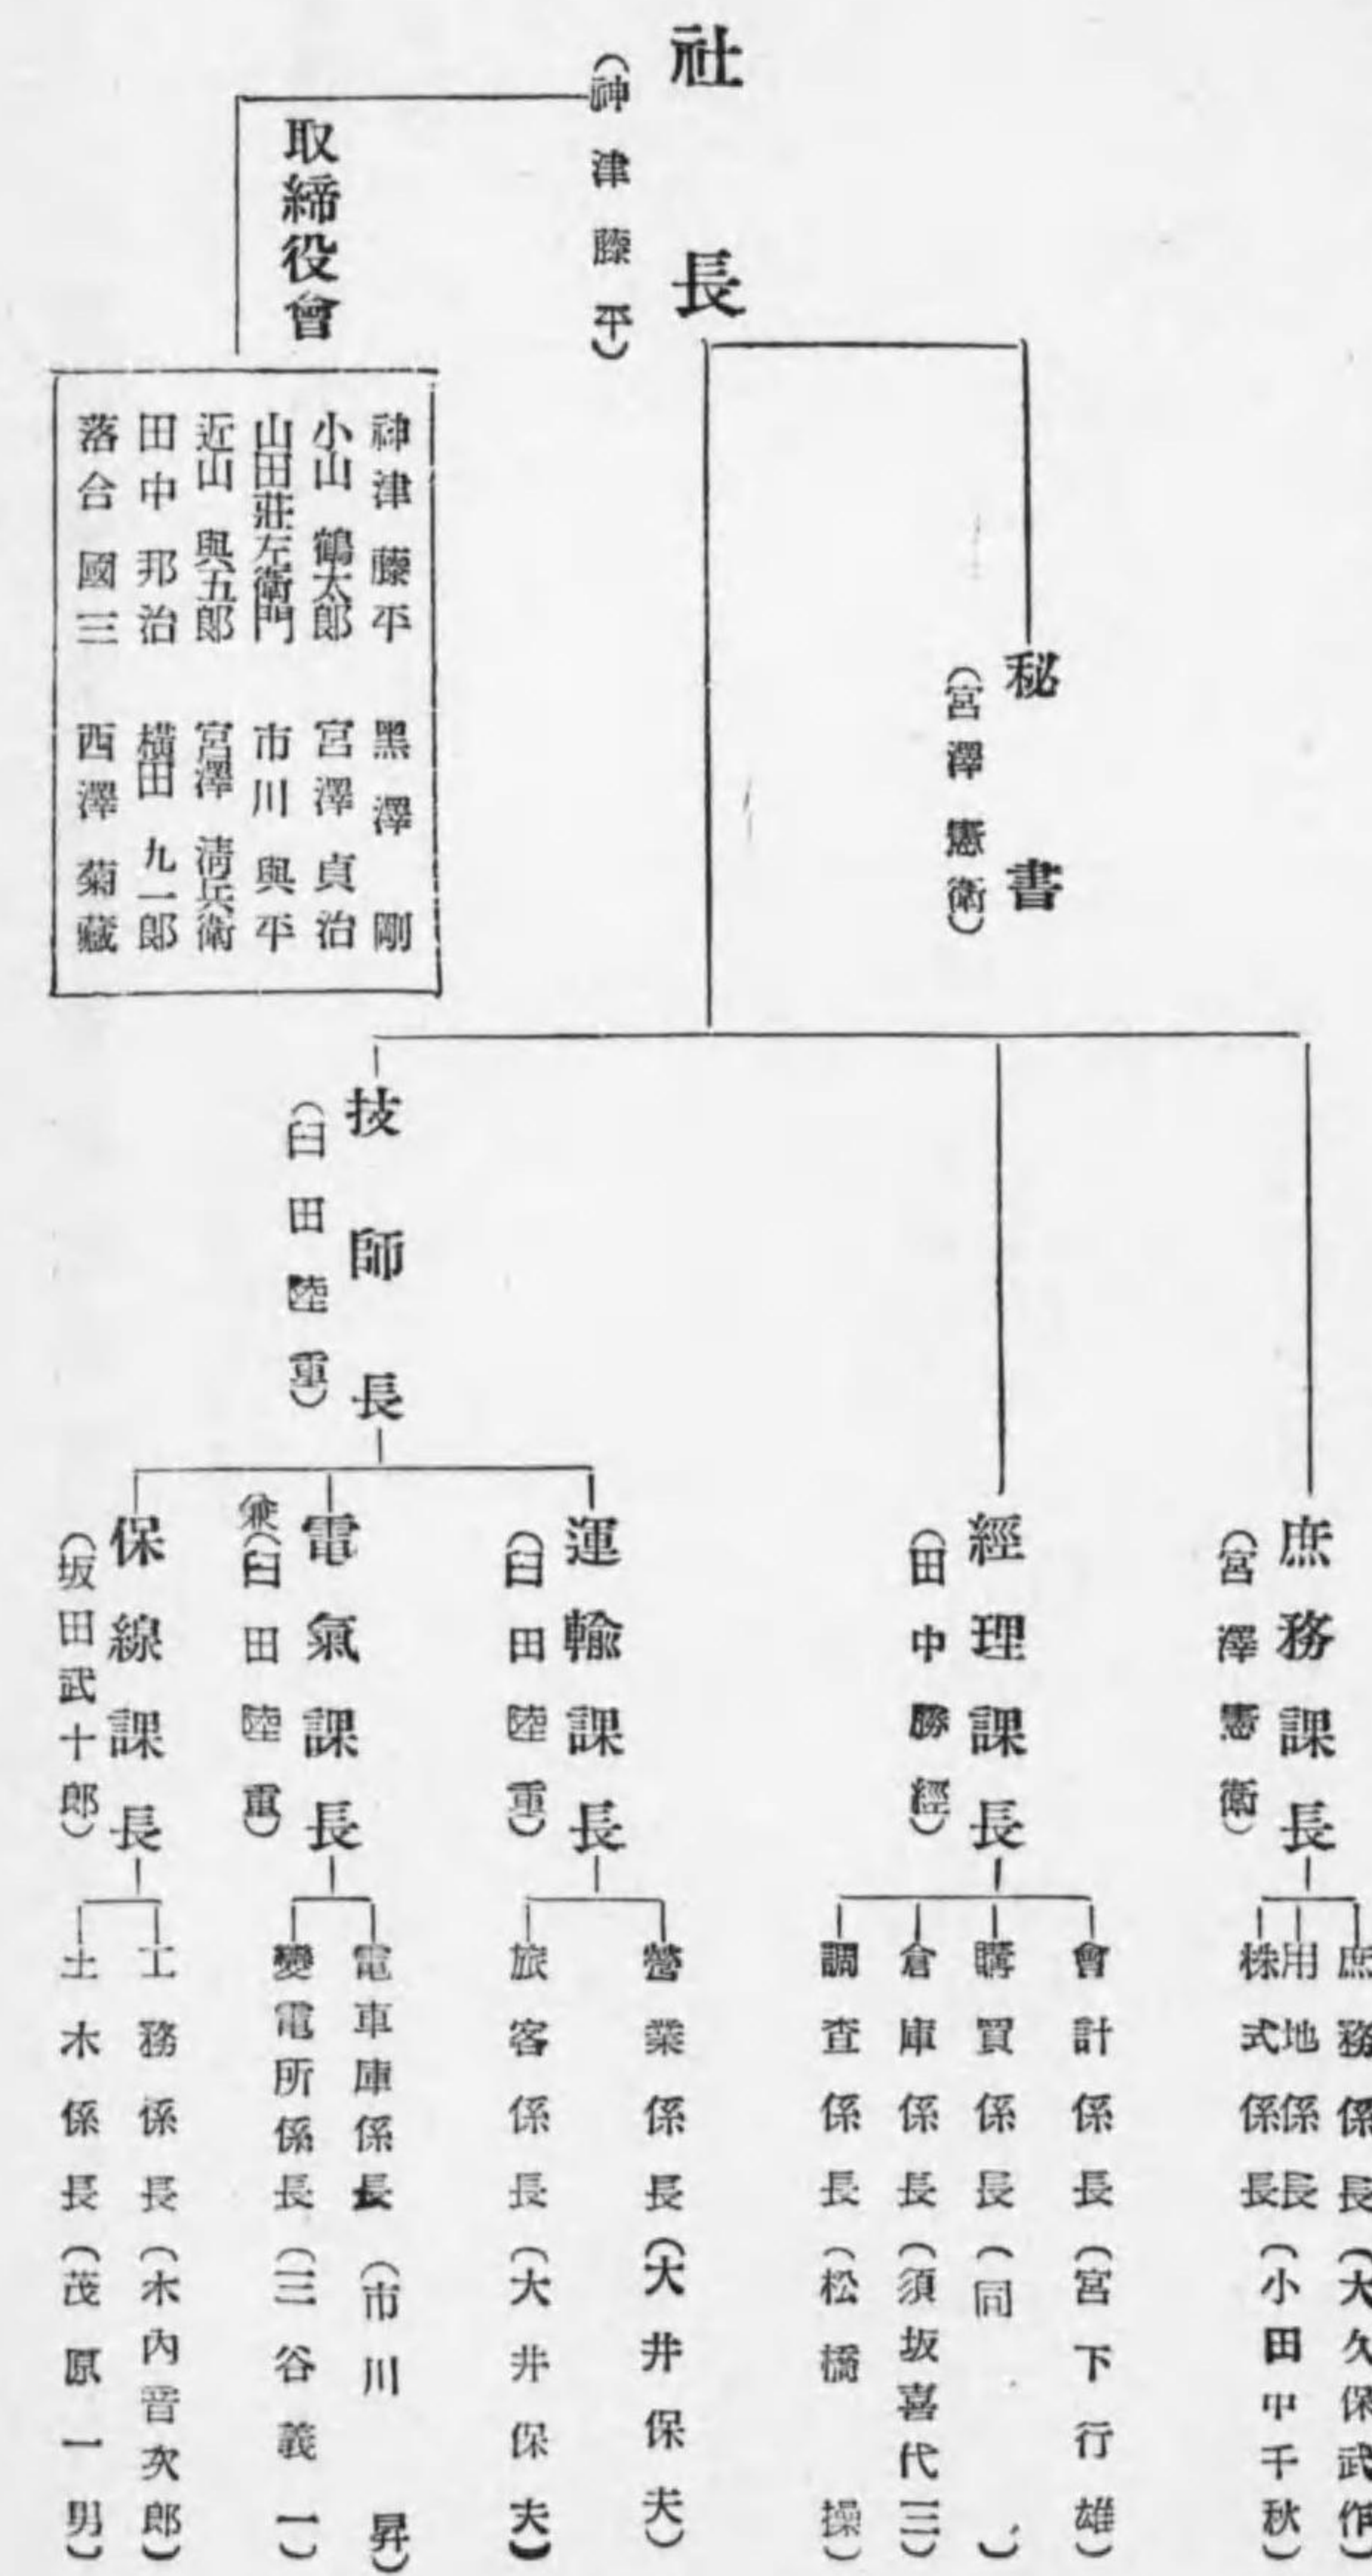 社長
(神津藤平)
取締役會
神津藤平 黑澤剛
小山鶴太郎 宮澤貞治
山田莊左衛門 市川與平
近山與五郎 宮澤淸兵衛
田中邦治 橫田九一郎
落合國三 西澤菊藏
秘書
(宮澤憲衛)
庶務課長
(宮澤憲衛)
庶務係長(大久保武作)
用地係長
株式係長(小田中千秋)
經理課長
(田中勝經)
會計係長(宮下行雄)
購買係長(同)
倉庫係長(須坂喜代三)
調査係長(松橋操)
技師長
(臼田陸重)
運輸課長
(臼田陸重)
營業係長(大井保夫)
旅客係長(大井保夫)
電氣課長
兼(臼田陸重)
電車庫係長(市川昇)
變電所係長(三谷義一)
保線課長
(坂田武十郎)
工務係長(木內音次郎)
土木係長(茂原一男)